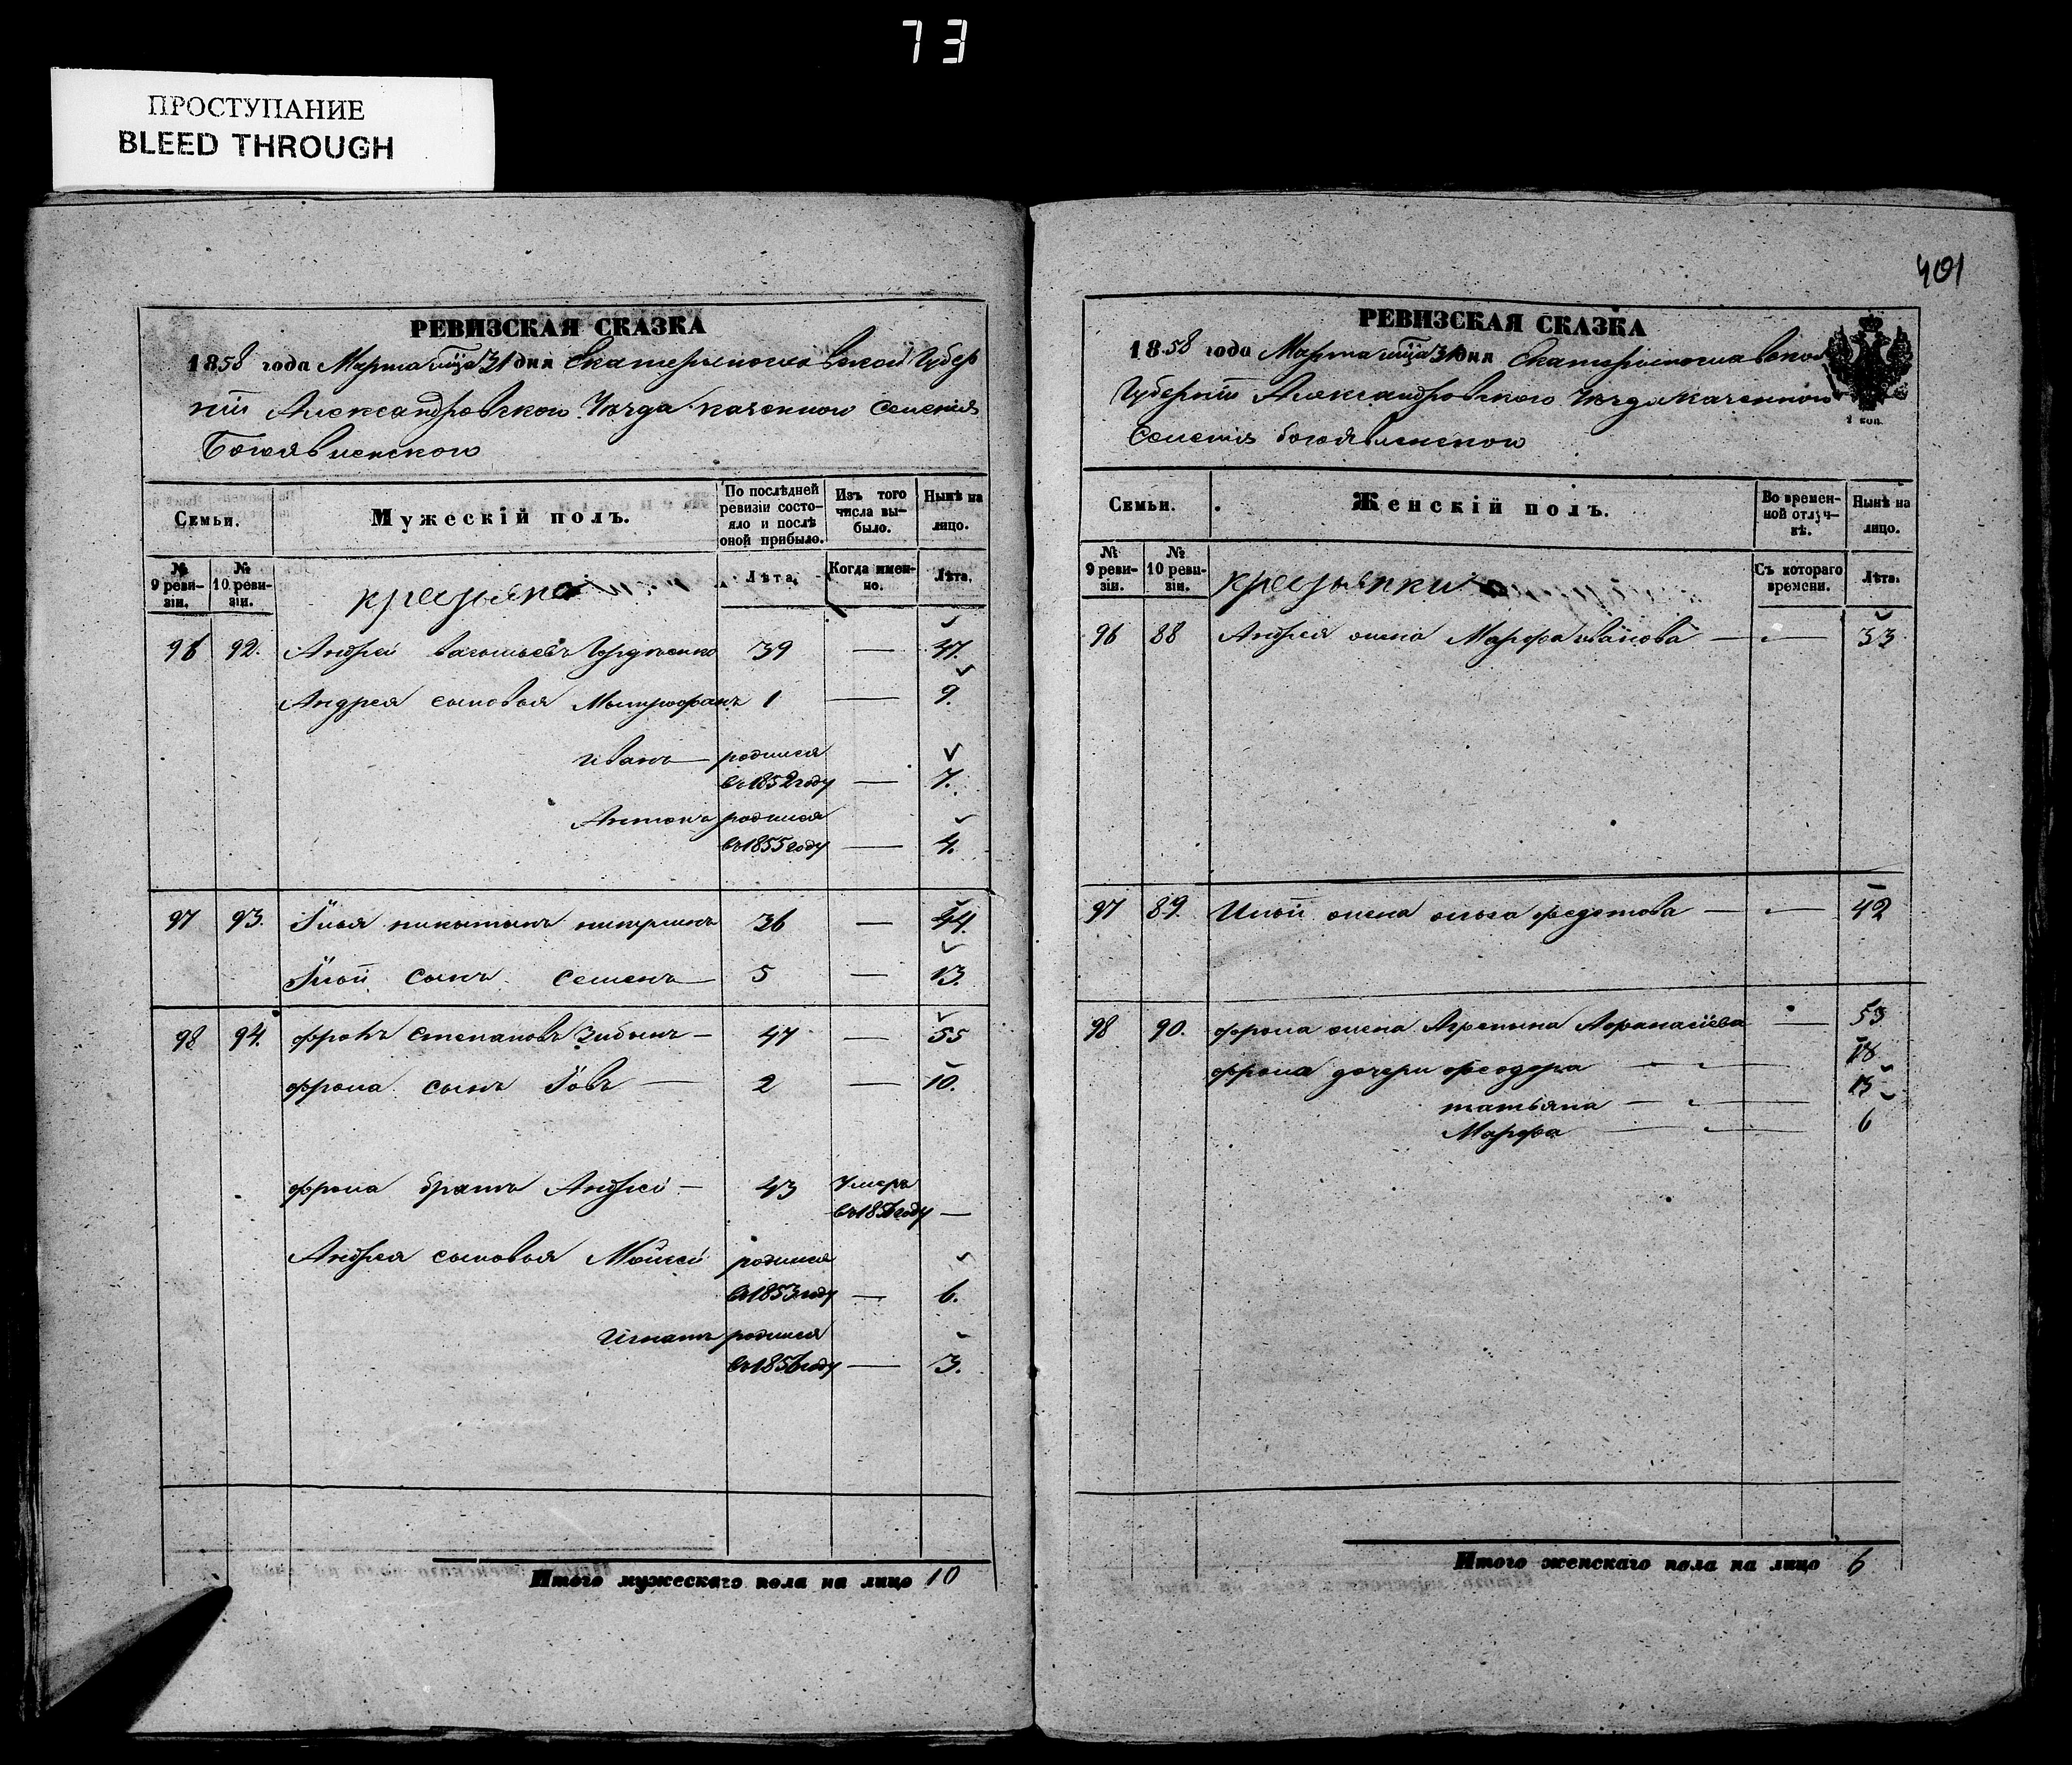 73
ПРОСТУПАНИЕ
BLEED THROUGH
РЕВИЗСКАЯ СКАЗКА
1858 года Марта мца 31 дня Екатеринославской Губер
нiи Александровского Уезда казенного селенiя
Богоявленского
Семьи.
Мужескiй полъ.
По послѣдней ревизiи состо-
яло и послѣ
оной прибыло.
Изъ того числа вы-
было.
Нынѣ на
лицо.
№ 9 реви-
зiи.
№ 10 реви-
зiи.
Лѣта.
Когда имен-
но.
Лѣта.
96 92. Андрей 39 — 47.
Андрея сыновья Митрофанъ 1 — 9.
Иванъ — родился
въ 1852 году — 7.
Антонъ родился
въ 1855 году — 4.
97 93. Илья 36 — 44.
Ильи сынъ Семенъ — 5 — 13.
98 94. фролъ степановъ — 47 — 55
фрола сынъ Iовъ — 2 — 10.
фрола братъ Андрей — 43 Умеръ
въ 1856 году —
Андрея сыновья Мойсей родился
въ 1853 году — 6.
Игнатъ родился
въ 1856 году — 3.
Итого мужескаго пола на лицо 10
401
РЕВИЗСКАЯ СКАЗКА
1858 года Марта мца 31 дня Екатеринославской
Губернiи Александровского Уезда казенного
Селенiя богоявленского
1 коп.
Семьи.
Женскiй полъ.
Во времен-
ной отлуч-
кѣ.
Нынѣ на
лицо.
№ 9 реви-
зiи.
№ 10 реви-
зiи.
крестьянки
Съ котораго
времени.
Лѣта.
96 88 Андрея жена Марфа иванова — — 33
97 89. Ильи жена ольга федотова — — 42
98 90. фрола жена Агрепина Афанасiева — 53
фрола дочери феодора — 18
татьяна — — 13
Марфа — — 6
Итого женскаго пола на лицо 6